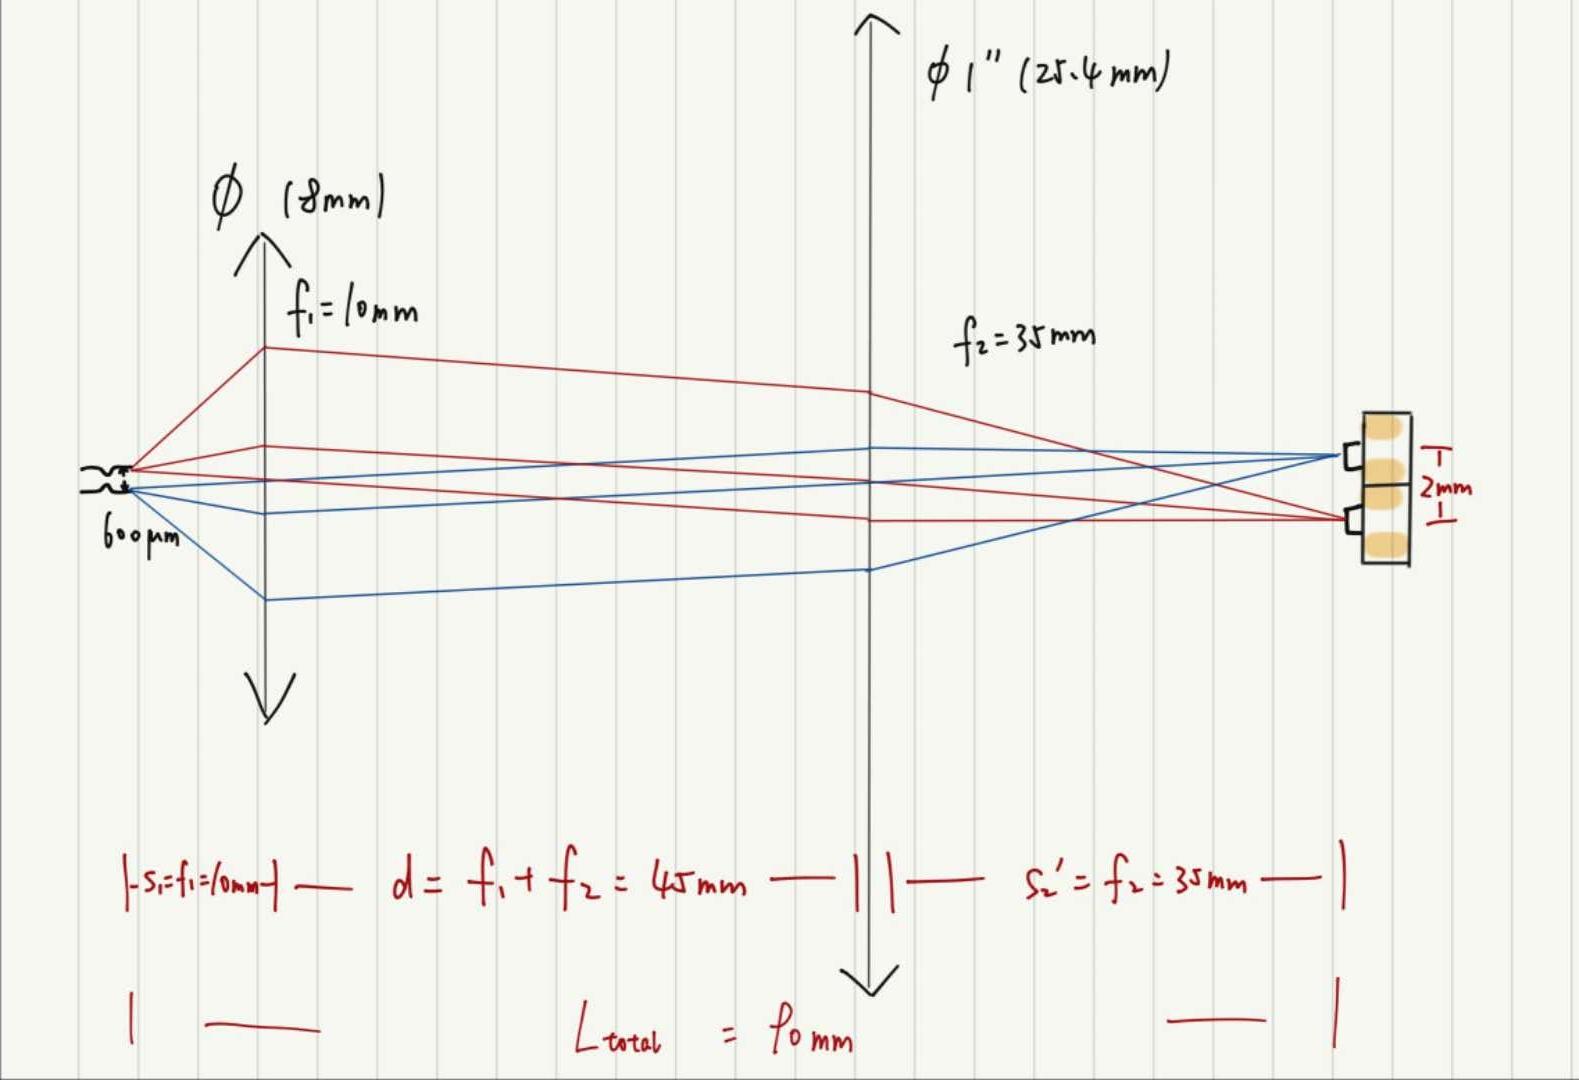 ϕ 1" (25.4 mm)
ϕ (8mm)
f₁ = 10mm
f₂ = 35mm
600μm
2mm
-s₁=f₁=10mm
d = f₁ + f₂ = 45mm
s₂' = f₂ = 35mm
L total = 90mm